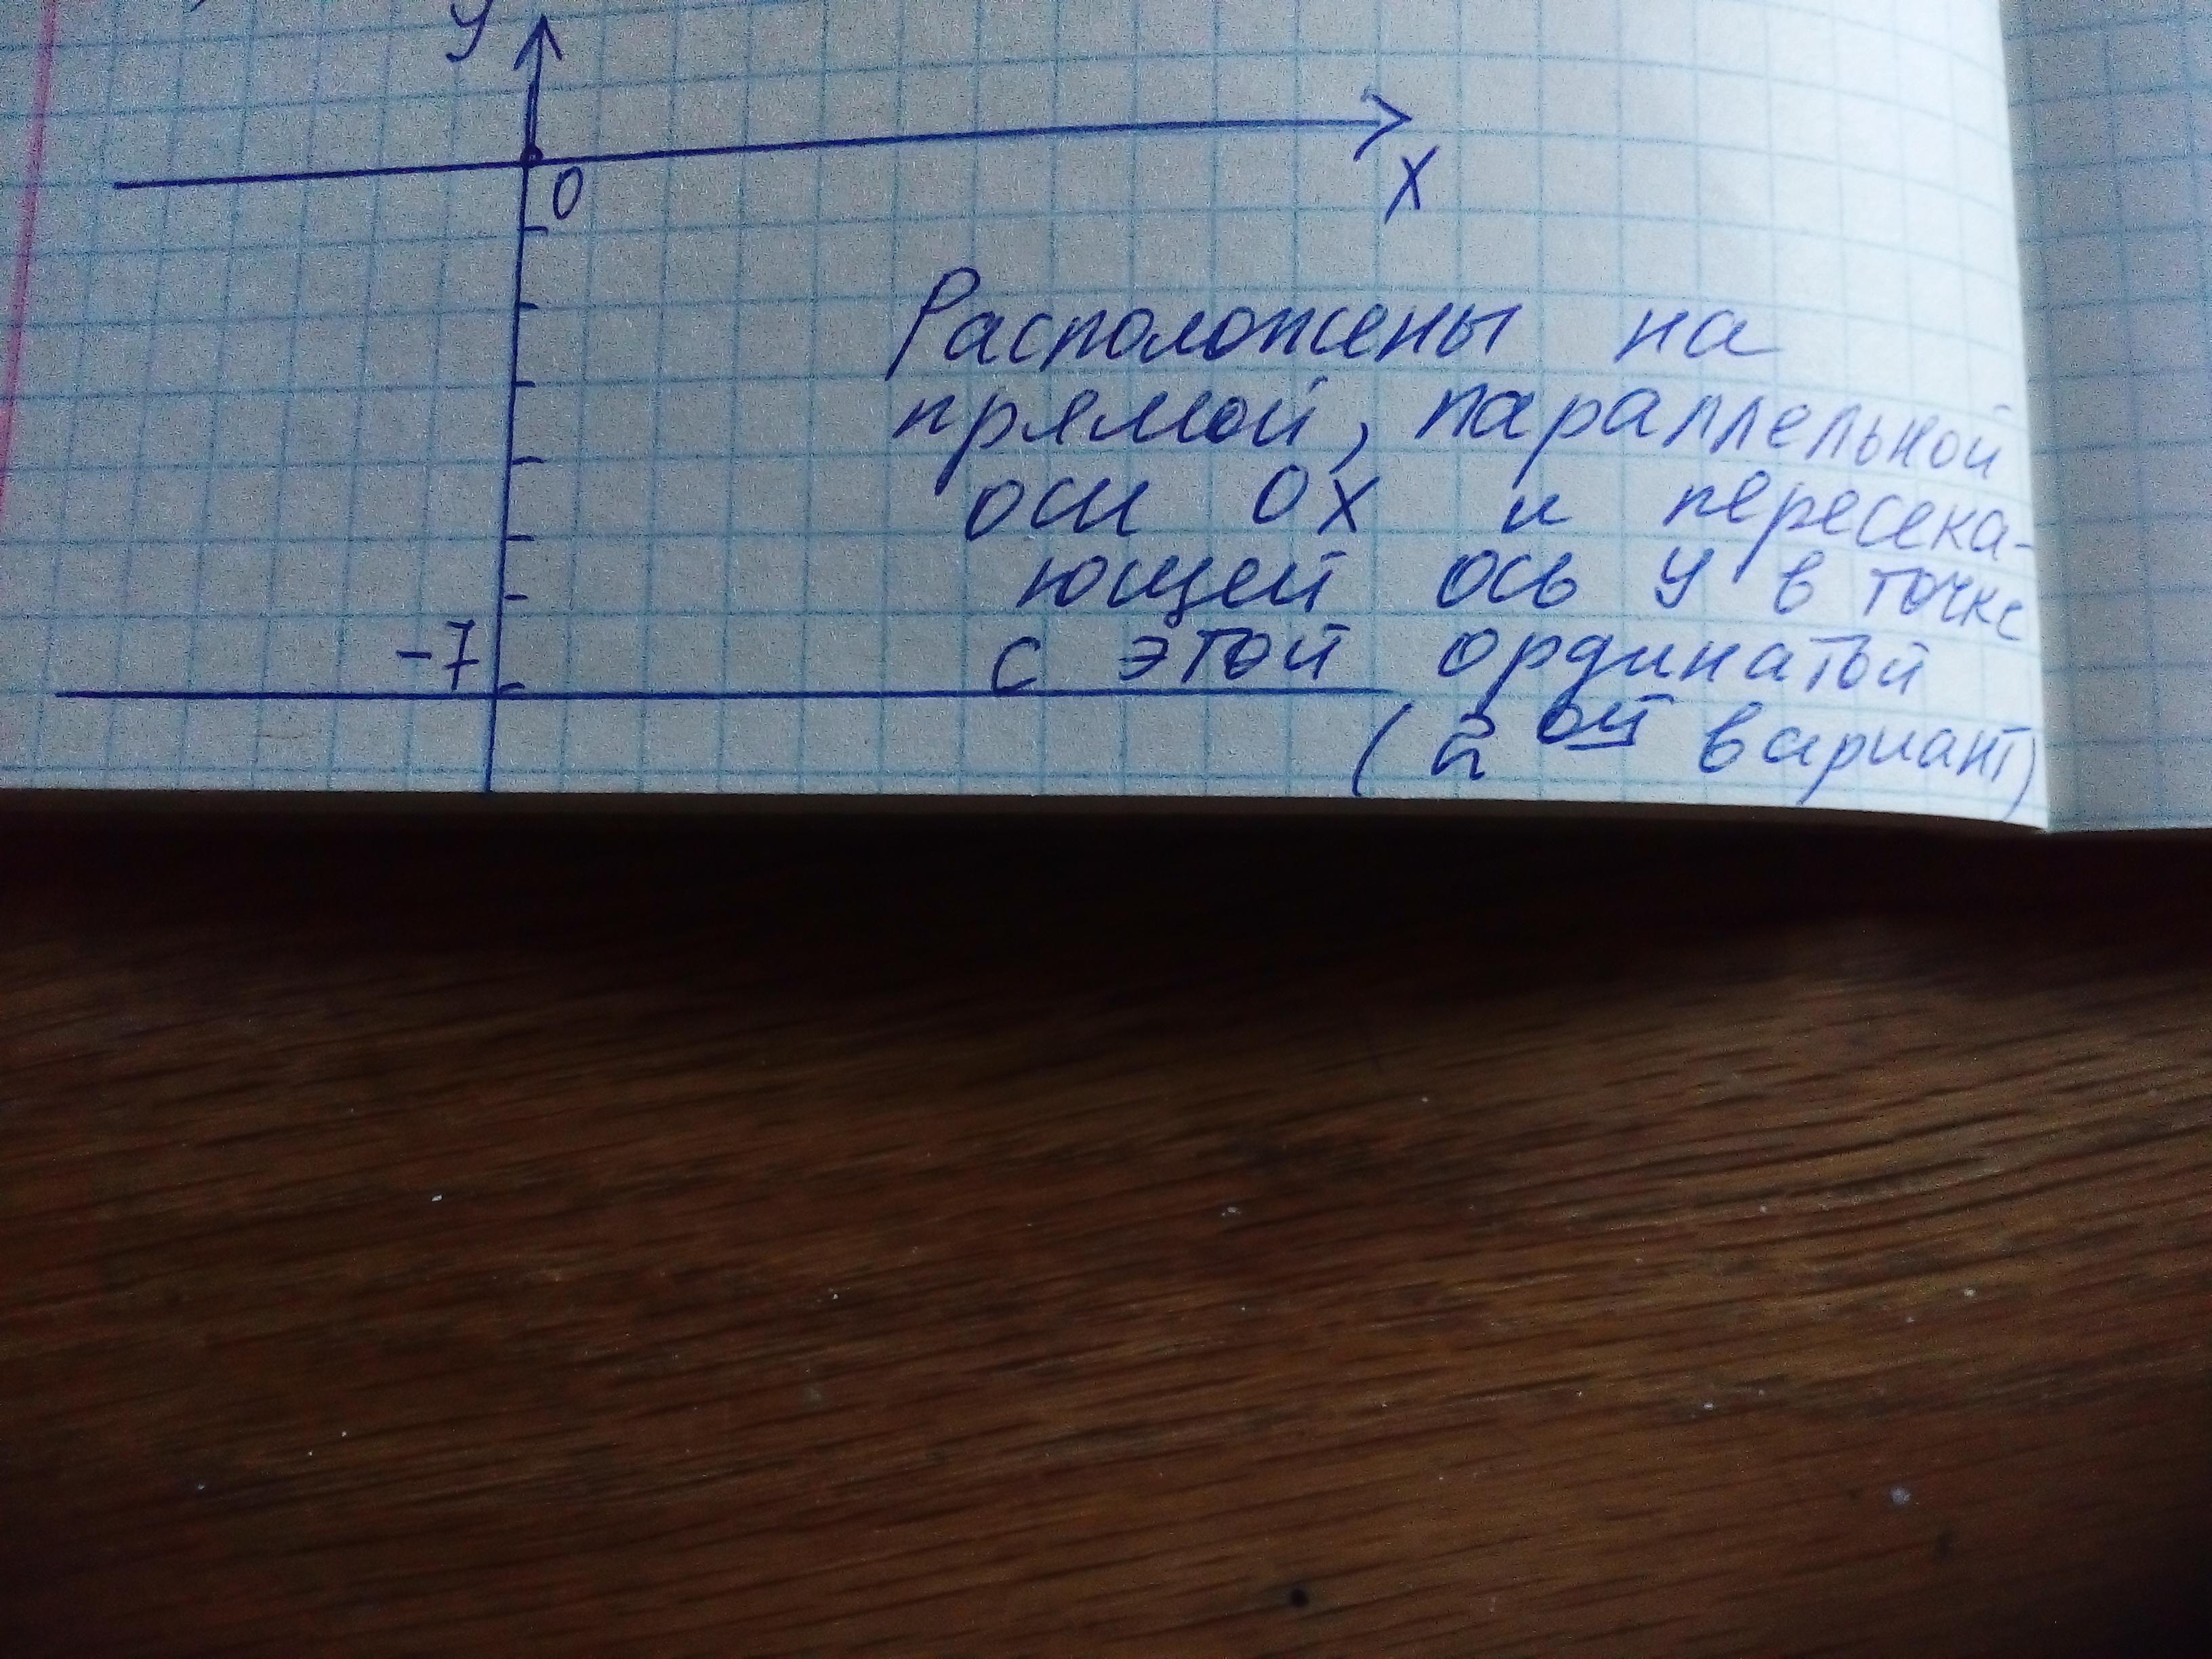 y
0
x
Расположены на
прямой, параллельной
оси Ox и пересека-
ющей ось y в точке
-7
с этой ординатой
(2ой вариант)